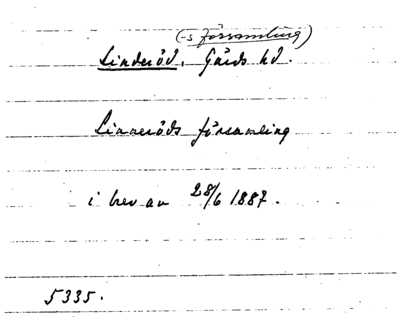 (-s församling)
Linderöd, Gärds hd.
Linneröds församling
i brev av 28/6 1887.
5335.